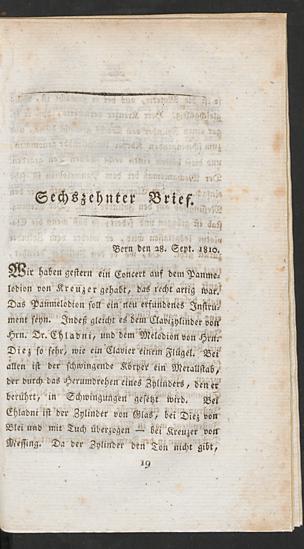 Sechszehnter Brief.
Bern den 28. Sept. 1810.
Wir haben gestern ein Concert auf dem Panme-
lodion von Kreuzer gehabt, das recht artig war.
Das Panmelodion soll ein neu erfundenes Instru-
ment seyn. Indeß gleicht es dem Clavizylinder von
Hrn. Dr. Chladni, und dem Melodion von Hrn.
Diez so sehr, wie ein Clavier einem Flügel. Bei
allen ist der schwingende Körper ein Metallstab,
der durch das Herumdrehen eines Zylinders, den er
berührt, in Schwingungen gesetzt wird. Bei
Chladni ist der Zylinder von Glas, bei Diez von
Blei und mit Tuch überzogen — bei Kreuzer von
Messing. Da der Zylinder den Ton nicht gibt,
19